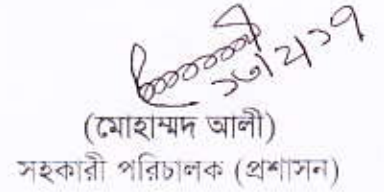 ১৩/২/১৭
(মোহাম্মদ আলী)
সহকারী পরিচালক (প্রশাসন)